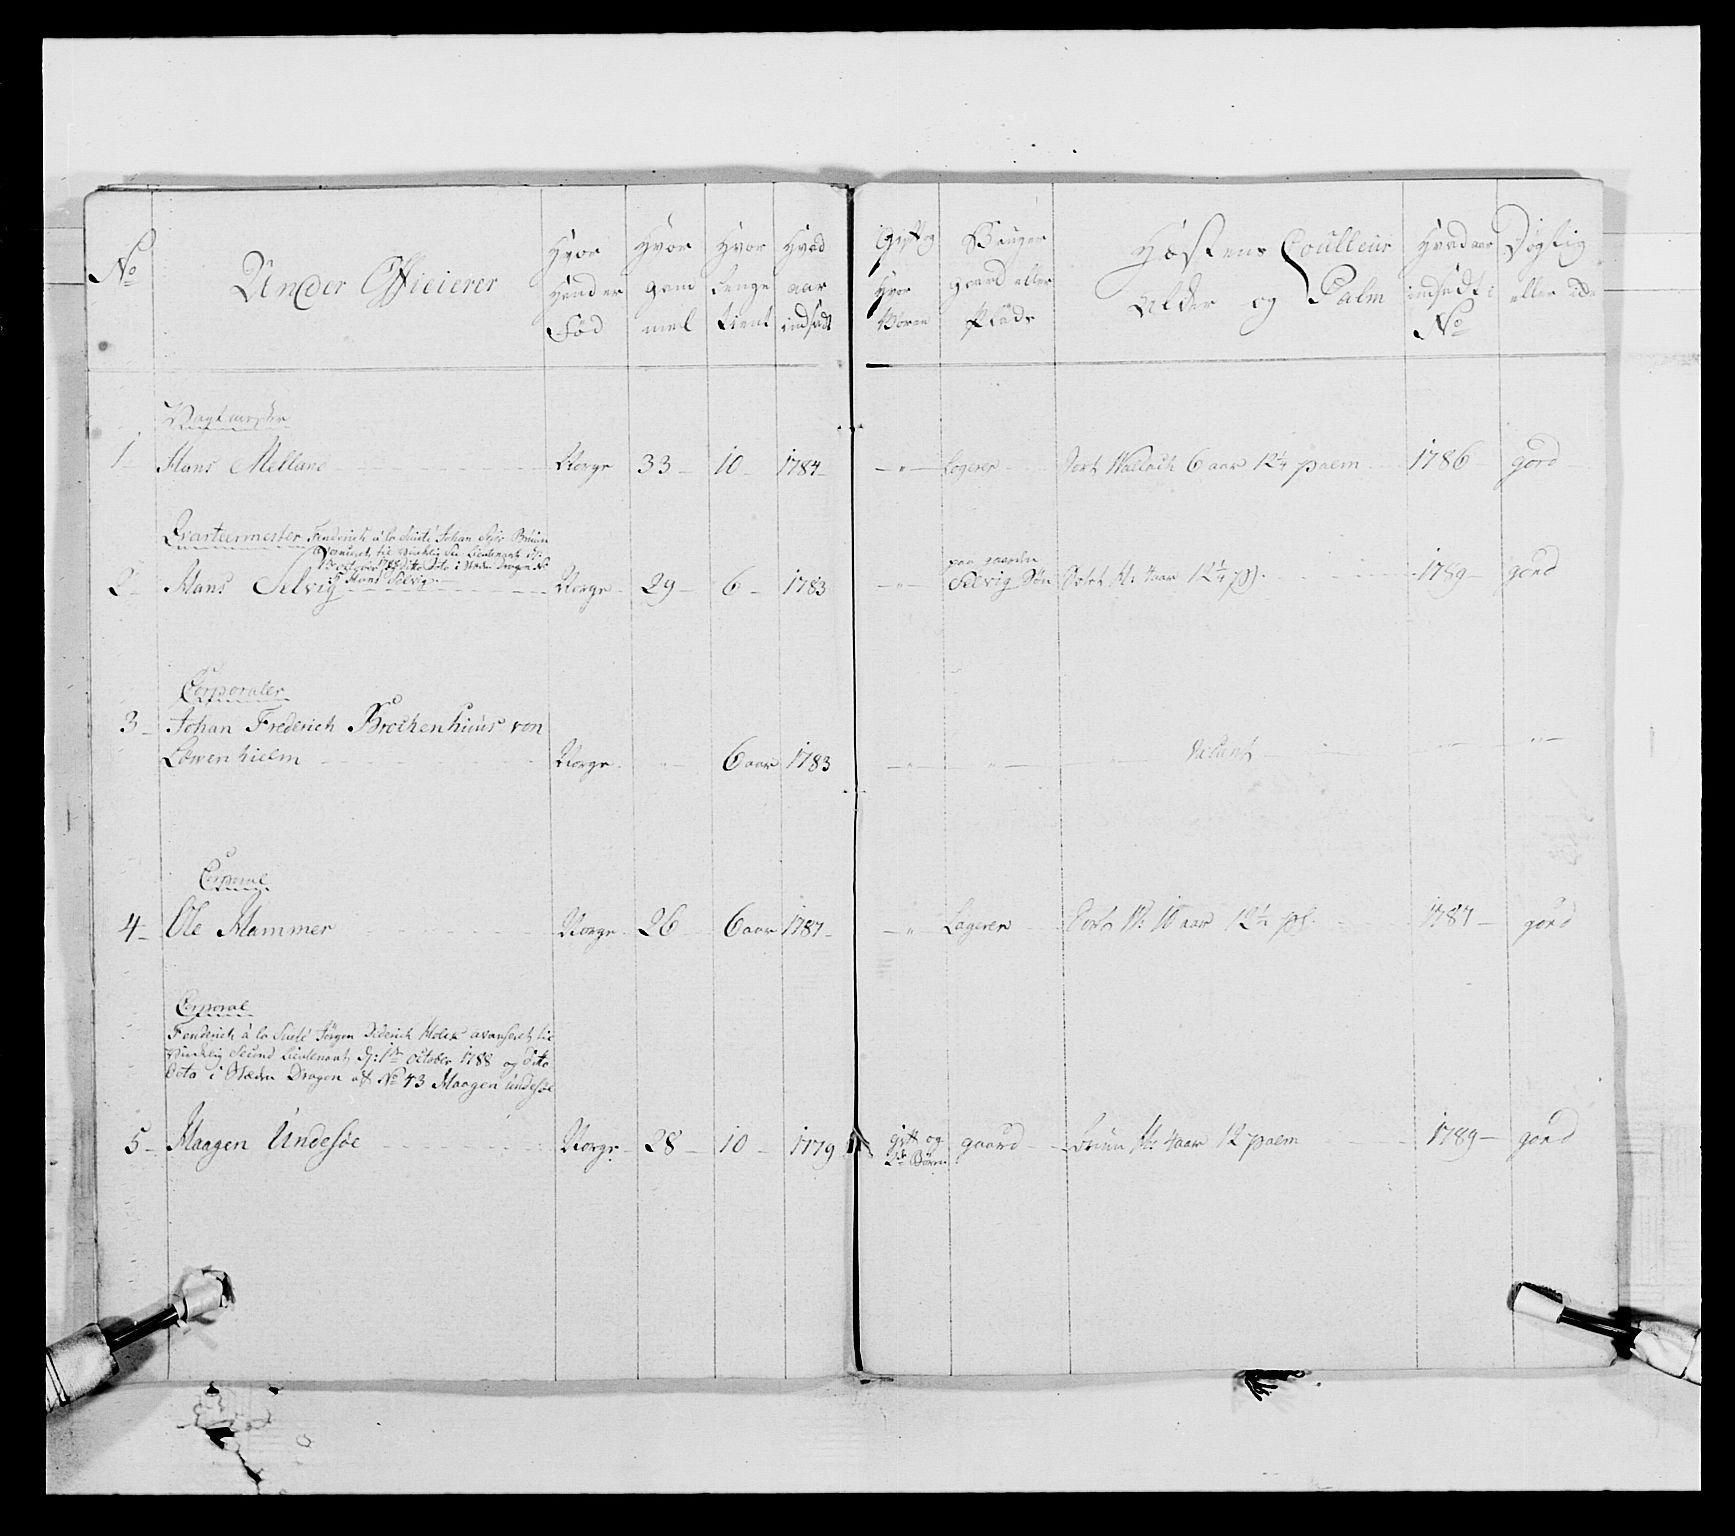 No
Under Officierer
Hvor
Hand er
Fød
Hvor
gam
mel
Hvor
lenge
tient
Hvad
aar
indsadt
Gift og
Hvor
Børen
Bruger
gaard eller
Plads
Hæstens Coulleur
Alder og Palm
Hvad aar
indsadt i
No
Dygtig
eller
Vagtmester
1 Hans Melland Norge 33 10 1784 Logerer Sort Wallach 6 aar 12¼ palm 1786 god
Qvarteermester Fenderich á la Suite Johan Bruun
til Lieutenant
october 1788
Hans Selvig
paa gaarden
2 Hans Selvig Norge 29 6 1783 Selvig Søn Sort H: 4 aar 12¼ pl. 1789 god
Corporaler
3 Johan Frederich Brochenhuus von
Løwenhielm Norge 6 aar 1783 Vacant
Corporal
4 Ole Hammer Norge 26 6 aar 1787 Logerer 12½ pl. 1787 god
Corporal
Fenderich á la Suite Jørgen Diderich Holck avanseret til
Virkelig Second Lieutenant d: 1ste October 1788 og dito
dato i Stæden Dragon af No 43 Haagen Undesøe
5 Haagen Undesøe Norge 28 10 1779 gift og gaard Bruun H: 4 aar 12 palm 1789 god
2de Børn